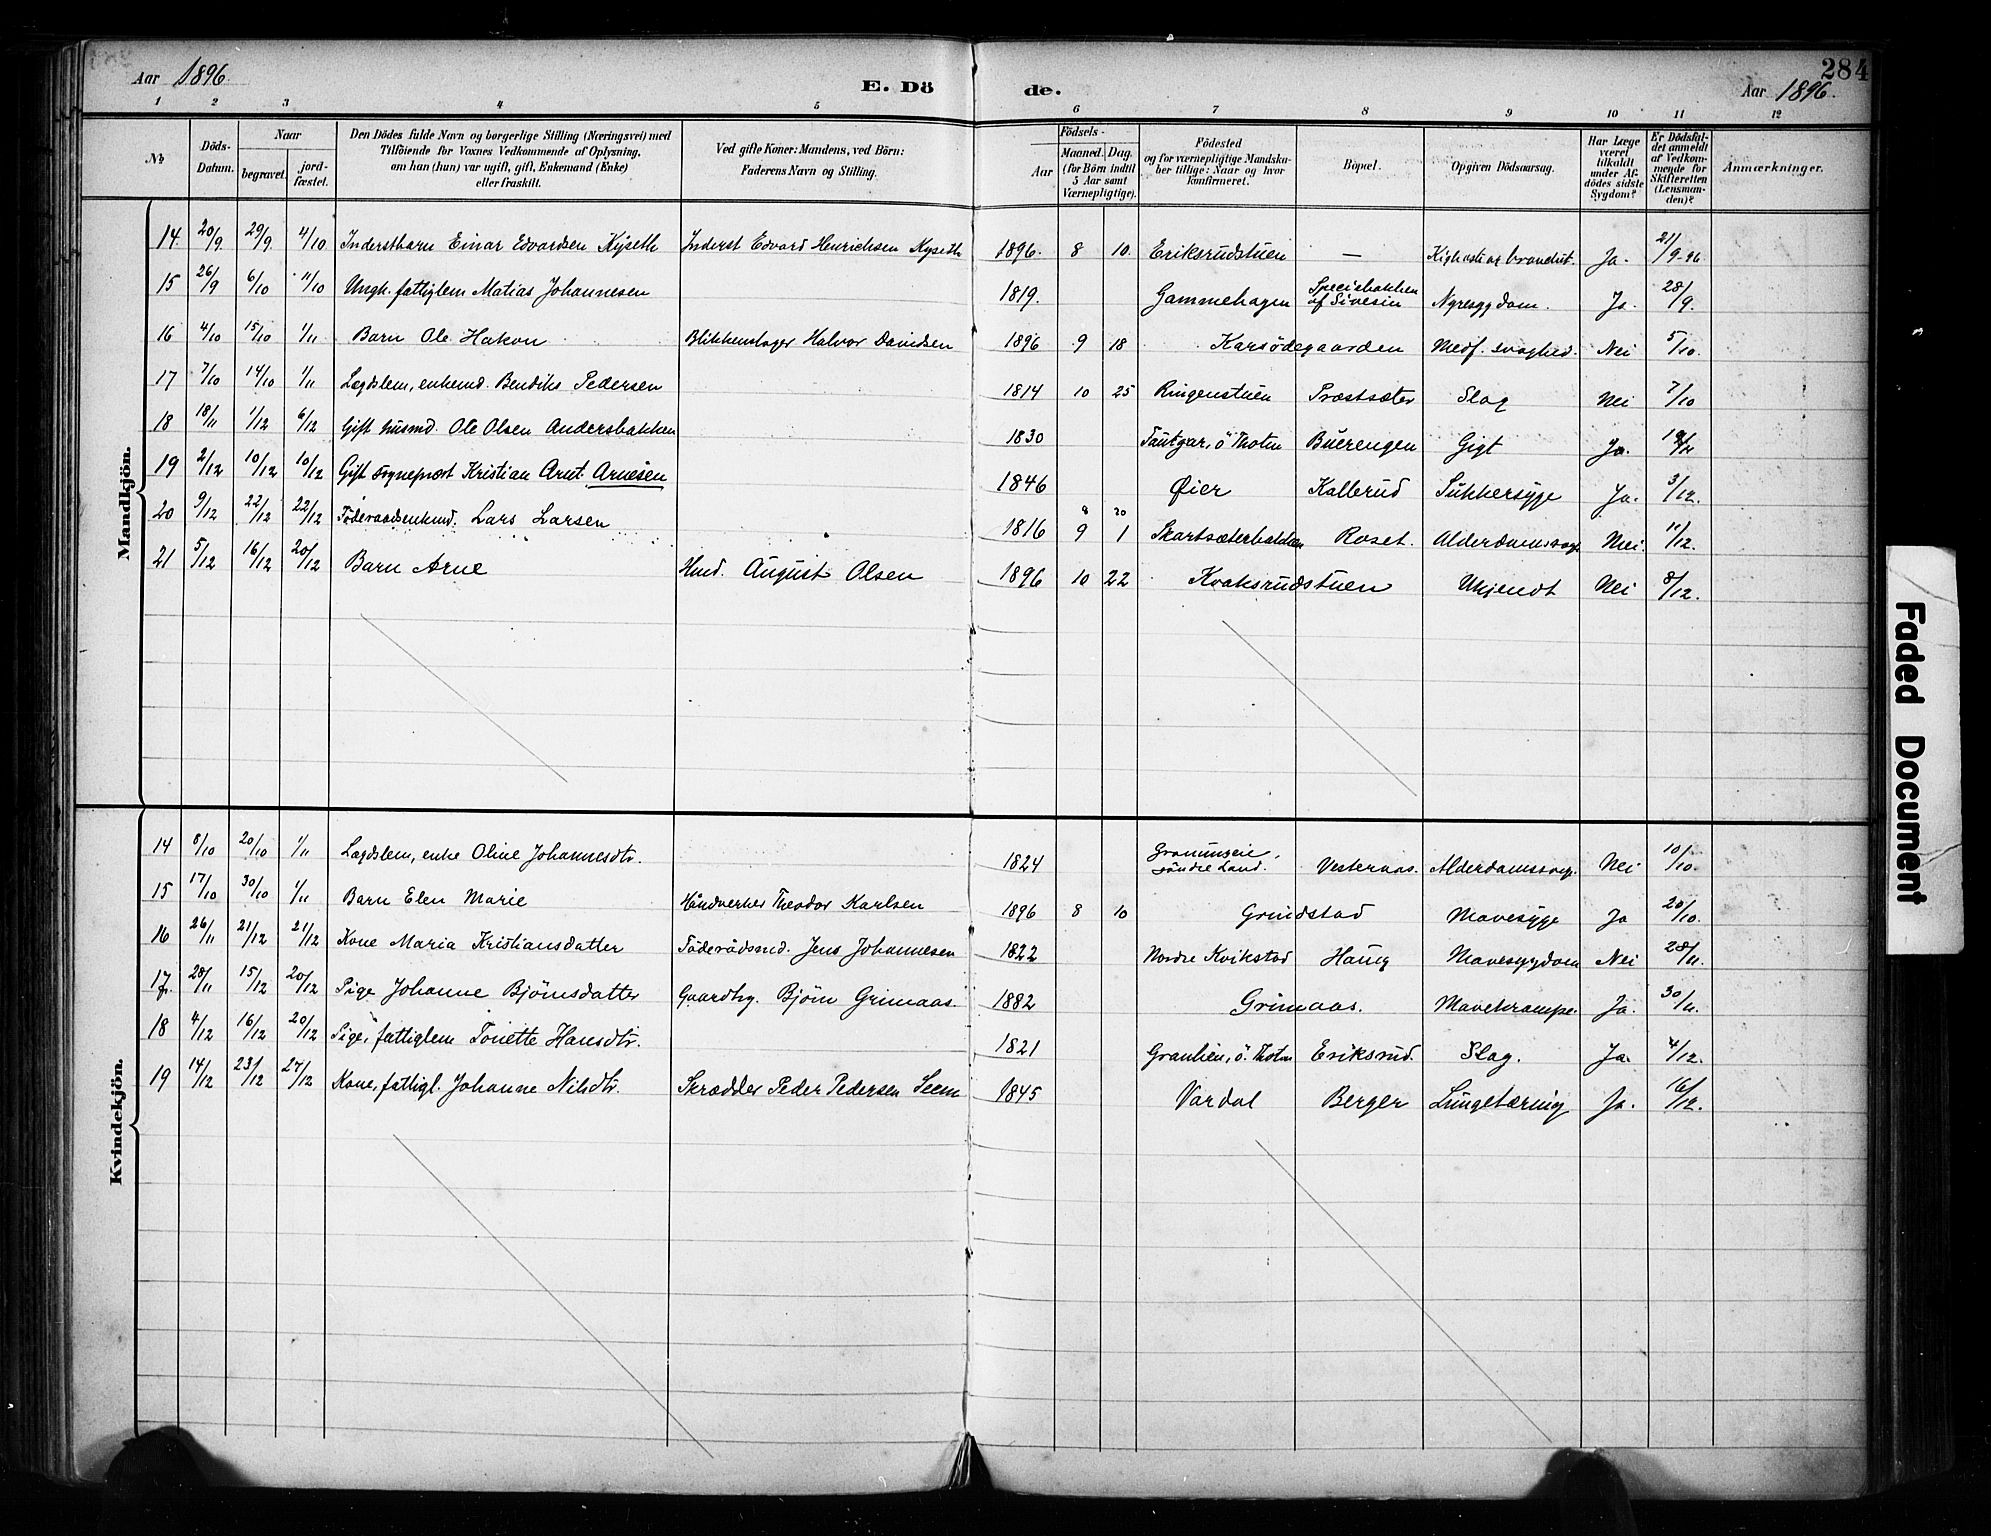 284
Aar 1896. E. Dö de. Aar 1896.
1 2 3 4 5 6 7 8 9 10 11 12
№ Döds-Datum. Naar begravet. jord-fæstet. Den Dödes fulde Navn og borgerlige Stilling (Næringsvei) med Tilföiende for Voxnes Vedkommende af Oplysning, om han (hun) var ugift, gift, Enkemand (Enke) eller fraskilt. Ved gifte Koner: Mandens, ved Börn: Faderens Navn og Stilling. Födsels- Aar Maaned. Dag. (for Börn indtil 5 Aar samt Værnepligtige). Födested og for værnepligtige Mandskaber tillige: Naar og hvor konfirmeret. Bopæl. Opgiven Dödsaarsag. Har Læge været tilkaldt under Afdödes sidste Sygdom? Er Dödsfaldet anmeldt af Vedkommende for Skifteretten (Lensmanden)? Anmærkninger.
Mandkjön.
14. 20/9 29/9 4/10 Inderstbarn Einar Edvardsen Kyseth Inderst Edvard Henrichsen Kyseth 1896. 8 10. Eriksrudstuen — Kighoste og Ja. 21/9 96
15 26/9 6/10 11/10 Ungk. fattiglem Matias Johannesen 1819. Gammehagen Speciebakken af Sivesin Nyresygdom. Ja. 28/9.
16 4/10 15/10 1/11 Barn Ole Hakon Blikkenslager Halvor Davidsen 1896 9 18 Karsödegaarden Medf. svaghed. Nei 5/10.
17 7/10 14/10 1/11 Lægdslem, enkemd. Bendiks Pedersen 1814 10 25 Ringenstuen Præstsæter Slag Nei 7/10
18 18/11 1/12 6/12 Gift husmd. Ole Olsen Andersbakken 1830 ö Thotn Buerengen Gigt Ja.
19 2/12 10/12 10/12 Gift sogneprest Kristian Arnt Arnesen 1846 Øier Kallerud Sukkersyge Ja. 3/12.
20 9/12 22/12 22/12 Föderaadsenkmd. Lars Larsen 1816 8 9 20 1 Skartsæterbakken Roset. Alderdomssvagh. Nei. 11/12.
21 5/12 16/12 20/12 Barn Arne Hmd. August Olsen 1896 10 22 Kvaksrudstuen Ukjendt Nei 8/12.
Kvindekjön.
14 8/10 20/10 1/11 Lægdslem, enke Oline Johannesdtr. 1824 söndre Land. Vesteraas. Alderdomssvagh. Nei 10/10.
15 17/10 30/10 1/11 Barn Elen Marie Håndverker Theodor Karlsen 1896 8 10 Grindstad Mavesyge Ja 20/10.
16 26/11 21/12 21/12 Kone Maria Kristiansdatter Föderådsmd. Jens Johannesen 1822 Nordre Kvikstad Haug Mavesygdom Nei 28/11.
17. 28/11 15/12 20/12 Pige Johanne Bjömsdatter Gaardbr. Bjöm Grimaas. 1882 Grimaas. Mavekrampe. Ja. 30/11.
18 4/12 16/12 20/12 Pige, fattiglem Tonette Hansdtr. 1821 Granlien, ö. Thotn Eriksrud. Slag. Ja. 4/12.
19 14/12 23/12 27/12 Kone, fattigl. Johanne Nilsdtr. Skrædder Peder Pedersen Seem 1845 Vardal Berger Lungetæring Ja. 16/12.
Faded Document